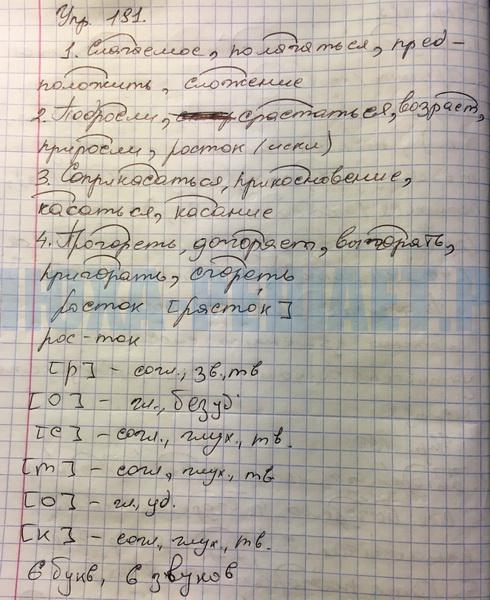 Упр. 191.
1. Слагаемое, полагаться, пред-
положить, сложение
2. Подросли, срастаться, возраст,
приросли, росток (искл)
3. Соприкасаться, прикосновение,
касаться, касание
4. Прогореть, догорает, выгорать,
пригорать, сгореть
росток [расто́к]
рос-ток
[р] - согл., зв., тв
[О] - гл., безуд.
[с] - согл., глух., тв.
[т] - согл, глух., тв
[О] - гл, уд.
[к] - согл., глух., тв.
6 букв, 6 звуков